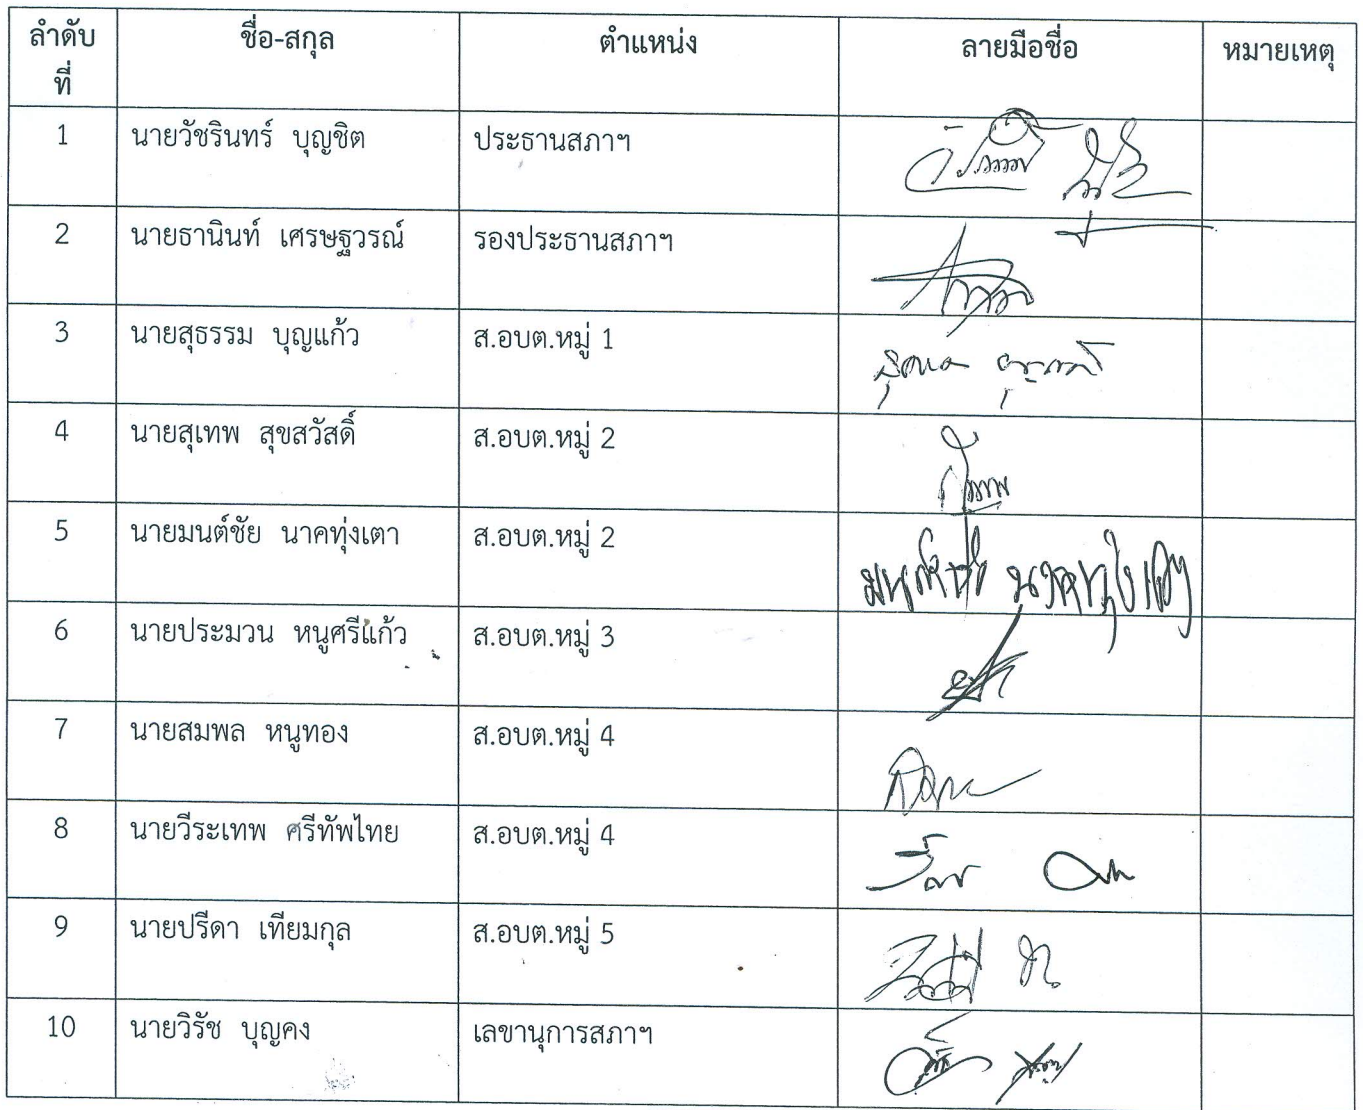 ลำดับที่ ชื่อ-สกุล ตำแหน่ง ลายมือชื่อ หมายเหตุ
1 นายวัชรินทร์ บุญชิต ประธานสภาฯ
2 นายธานินท์ เศรษฐวรณ์ รองประธานสภาฯ
3 นายสุธรรม บุญแก้ว ส.อบต.หมู่ 1
4 นายสุเทพ สุขสวัสดิ์ ส.อบต.หมู่ 2
5 นายมนต์ชัย นาคทุ่งเตา ส.อบต.หมู่ 2 มนต์ชัย นาคทุ่งเตา
6 นายประมวน หนูศรีแก้ว ส.อบต.หมู่ 3
7 นายสมพล หนูทอง ส.อบต.หมู่ 4
8 นายวีระเทพ ศรีทัพไทย ส.อบต.หมู่ 4
9 นายปรีดา เทียมกุล ส.อบต.หมู่ 5
10 นายวิรัช บุญคง เลขานุการสภาฯ